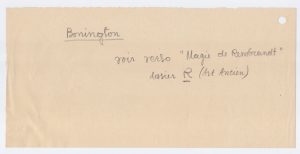 Bonington
voir verso "Magie de Rembrandt"
casier R (Art Ancien)